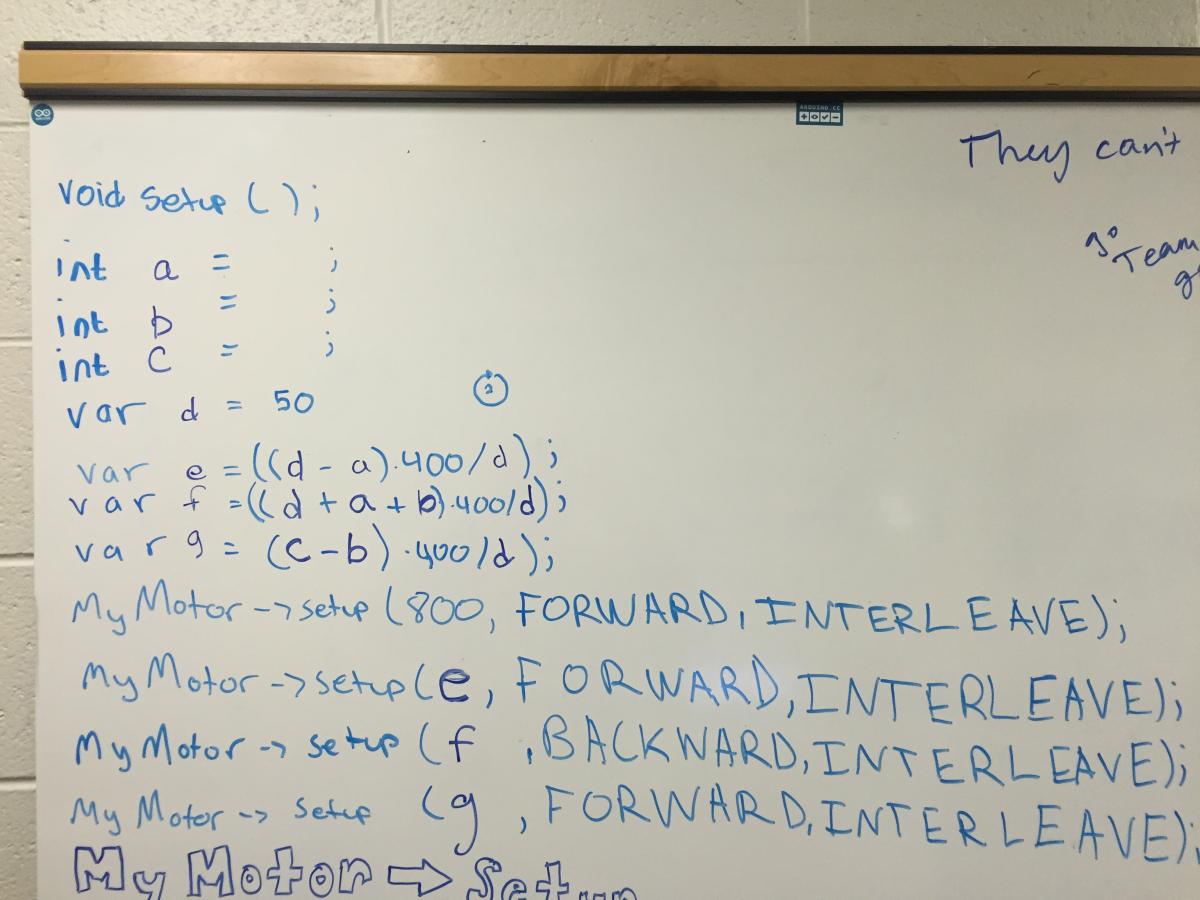 ARDUINO.CC
They can't
void setup ( );
Team
int a = ;
int b = ;
int c = ;
var d = 50
2
var e = ((d - a).400/d);
var f = ((d + a + b).400/d);
var g = (c - b).400/d);
My Motor -> setup (800, FORWARD, INTERLEAVE);
My Motor -> setup (e, FORWARD, INTERLEAVE);
My Motor -> setup (f , BACKWARD, INTERLEAVE);
My Motor -> setup (g , FORWARD, INTERLEAVE);
My Motor ⇒ Setup